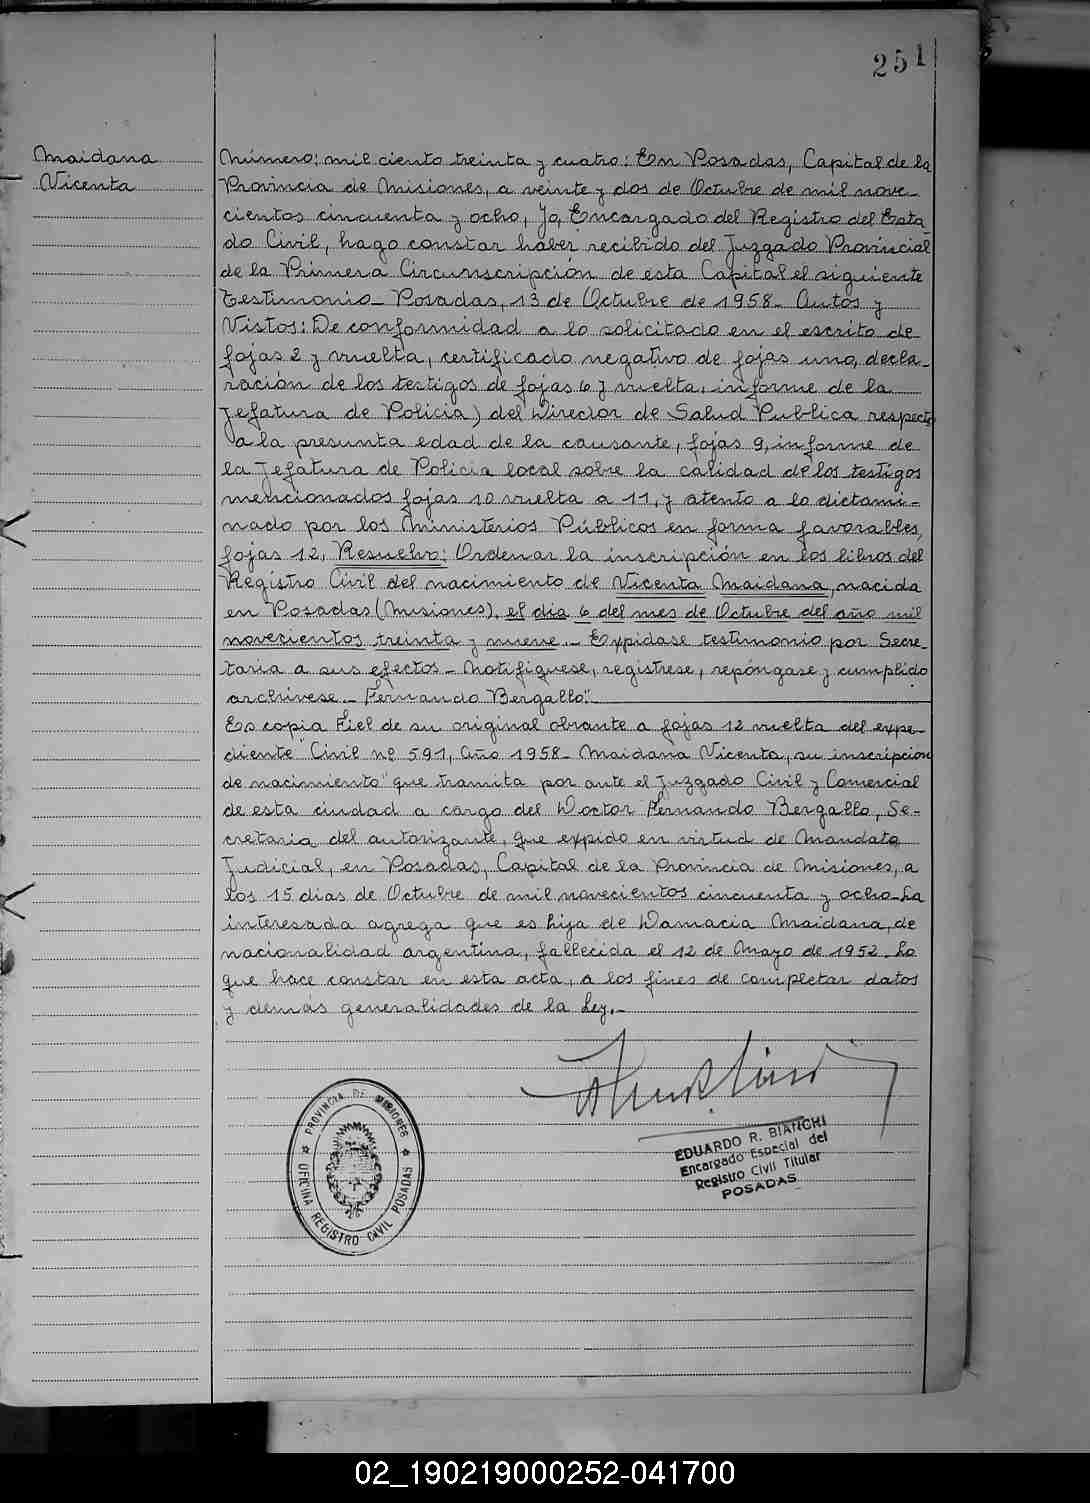 251
Maidana
Vicenta
Número: mil ciento treinta y cuatro: En Posadas, Capital de la
Provincia de Misiones, a veinte y dos de Octubre de mil nove-
cientos cincuenta y ocho, Yo, Encargado del Registro del Esta
do Civil, hago constar haber recibido del Juzgado Provincial
de la Primera Circunscripción de esta Capital el siguiente
testimonio_ Posadas, 13 de Octubre de 1958_ Autos y
Vistos: De conformidad a lo solicitado en el escrito de
fojas 2 y vuelta, certificado negativo de fojas uno, decla-
ración de los testigos de fojas 6 y vuelta, informe de la
Jefatura de Policia y del Director de Salud Publica respecto
a la presunta edad de la causante, fojas 9, informe de
la Jefatura de Policia local sobre la calidad de los testigos
mencionados fojas 10 vuelta a 11, y atento a lo dictami-
nado por los Ministerios Públicos en forma favorables,
fojas 12, Resuelvo: Ordenar la inscripción en los libros del
Registro Civil del nacimiento de Vicenta Maidana, nacida
en Posadas (Misiones), el dia 6 del mes de Octubre del año mil
novecientos treinta y nueve._ Expidase testimonio por Secre-
taria a sus efectos_ Notifiquese, registrese, repóngase y cumplido
archivese._ Fernando Bergallo".
Es copia Fiel de su original obrante a fojas 12 vuelta del expe-
diente "Civil nº 591, Año 1958_ Maidana Vicenta, su inscripción
de nacimiento" que tramita por ante el Juzgado Civil y Comercial
de esta ciudad a cargo del Doctor Fernando Bergallo, Se-
cretaria del autorizante, que expido en virtud de Mandato
Judicial, en Posadas, Capital de la Provincia de Misiones, a
los 15 dias de Octubre de mil novecientos cincuenta y ocho_La
interesada agrega que es hija de Damacia Maidana, de
nacionalidad argentina, fallecida el 12 de Mayo de 1952. Lo
que hace constar en esta acta, a los fines de completar datos
y demás generalidades de la Ley._
PROVINCIA DE MISIONES
OFICINA REGISTRO CIVIL POSADAS
EDUARDO R. BIANCHI
Encargado Especial del
Registro Civil Titular
POSADAS
02_190219000252-041700